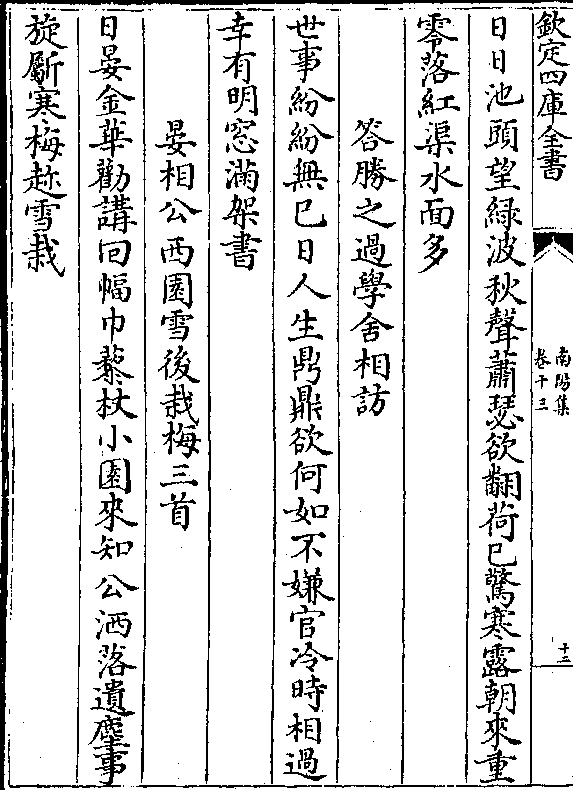 欽定四庫全書
南陽集
卷十三
十三
日日池頭望綠波秋聲蕭瑟欲翻荷已驚寒露朝來重
零落紅渠水面多
答勝之過學舍相訪
世事紛紛無已日人生鼎鼎欲何如不嫌官冷時相過
幸有明窓滿架書
晏相公西園雪後栽梅三首
日晏金華勸講回幅巾藜杖小園來知公洒落遺塵事
旋斸寒梅趂雪栽